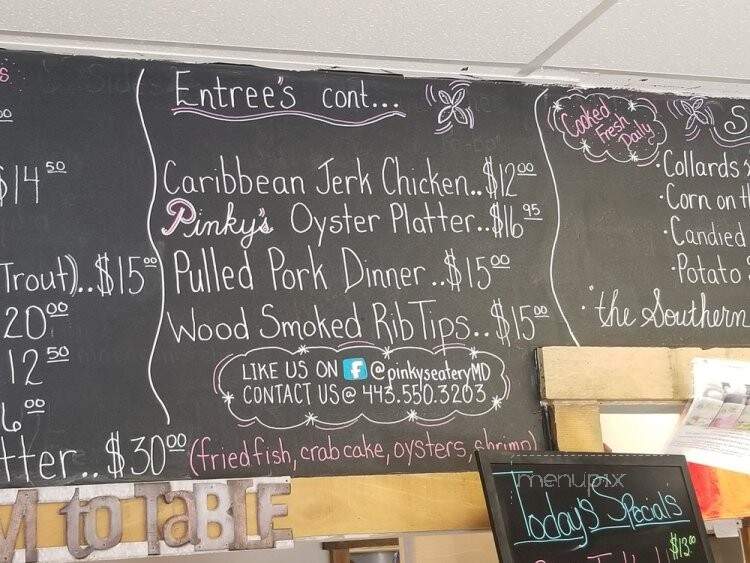 $14 50
Trout)..$15 00
20 00
12 50
6 00
tter..$30 00 (fried fish, crab cake, oysters, shrimp)
Entree's cont...
Caribbean Jerk Chicken..$12 00
Pinky's Oyster Platter..$16 95
Pulled Pork Dinner..$15 00
Wood Smoked Rib Tips..$15 00
LIKE US ON f @pinkyseateryMD
CONTACT US@ 443.550.3203
Cooked
Fresh
Daily
S
·Collards
·Corn on t
·Candied
·Potato
·the Southern
M to TaBLE
menupix
Today's Specials
$13.00